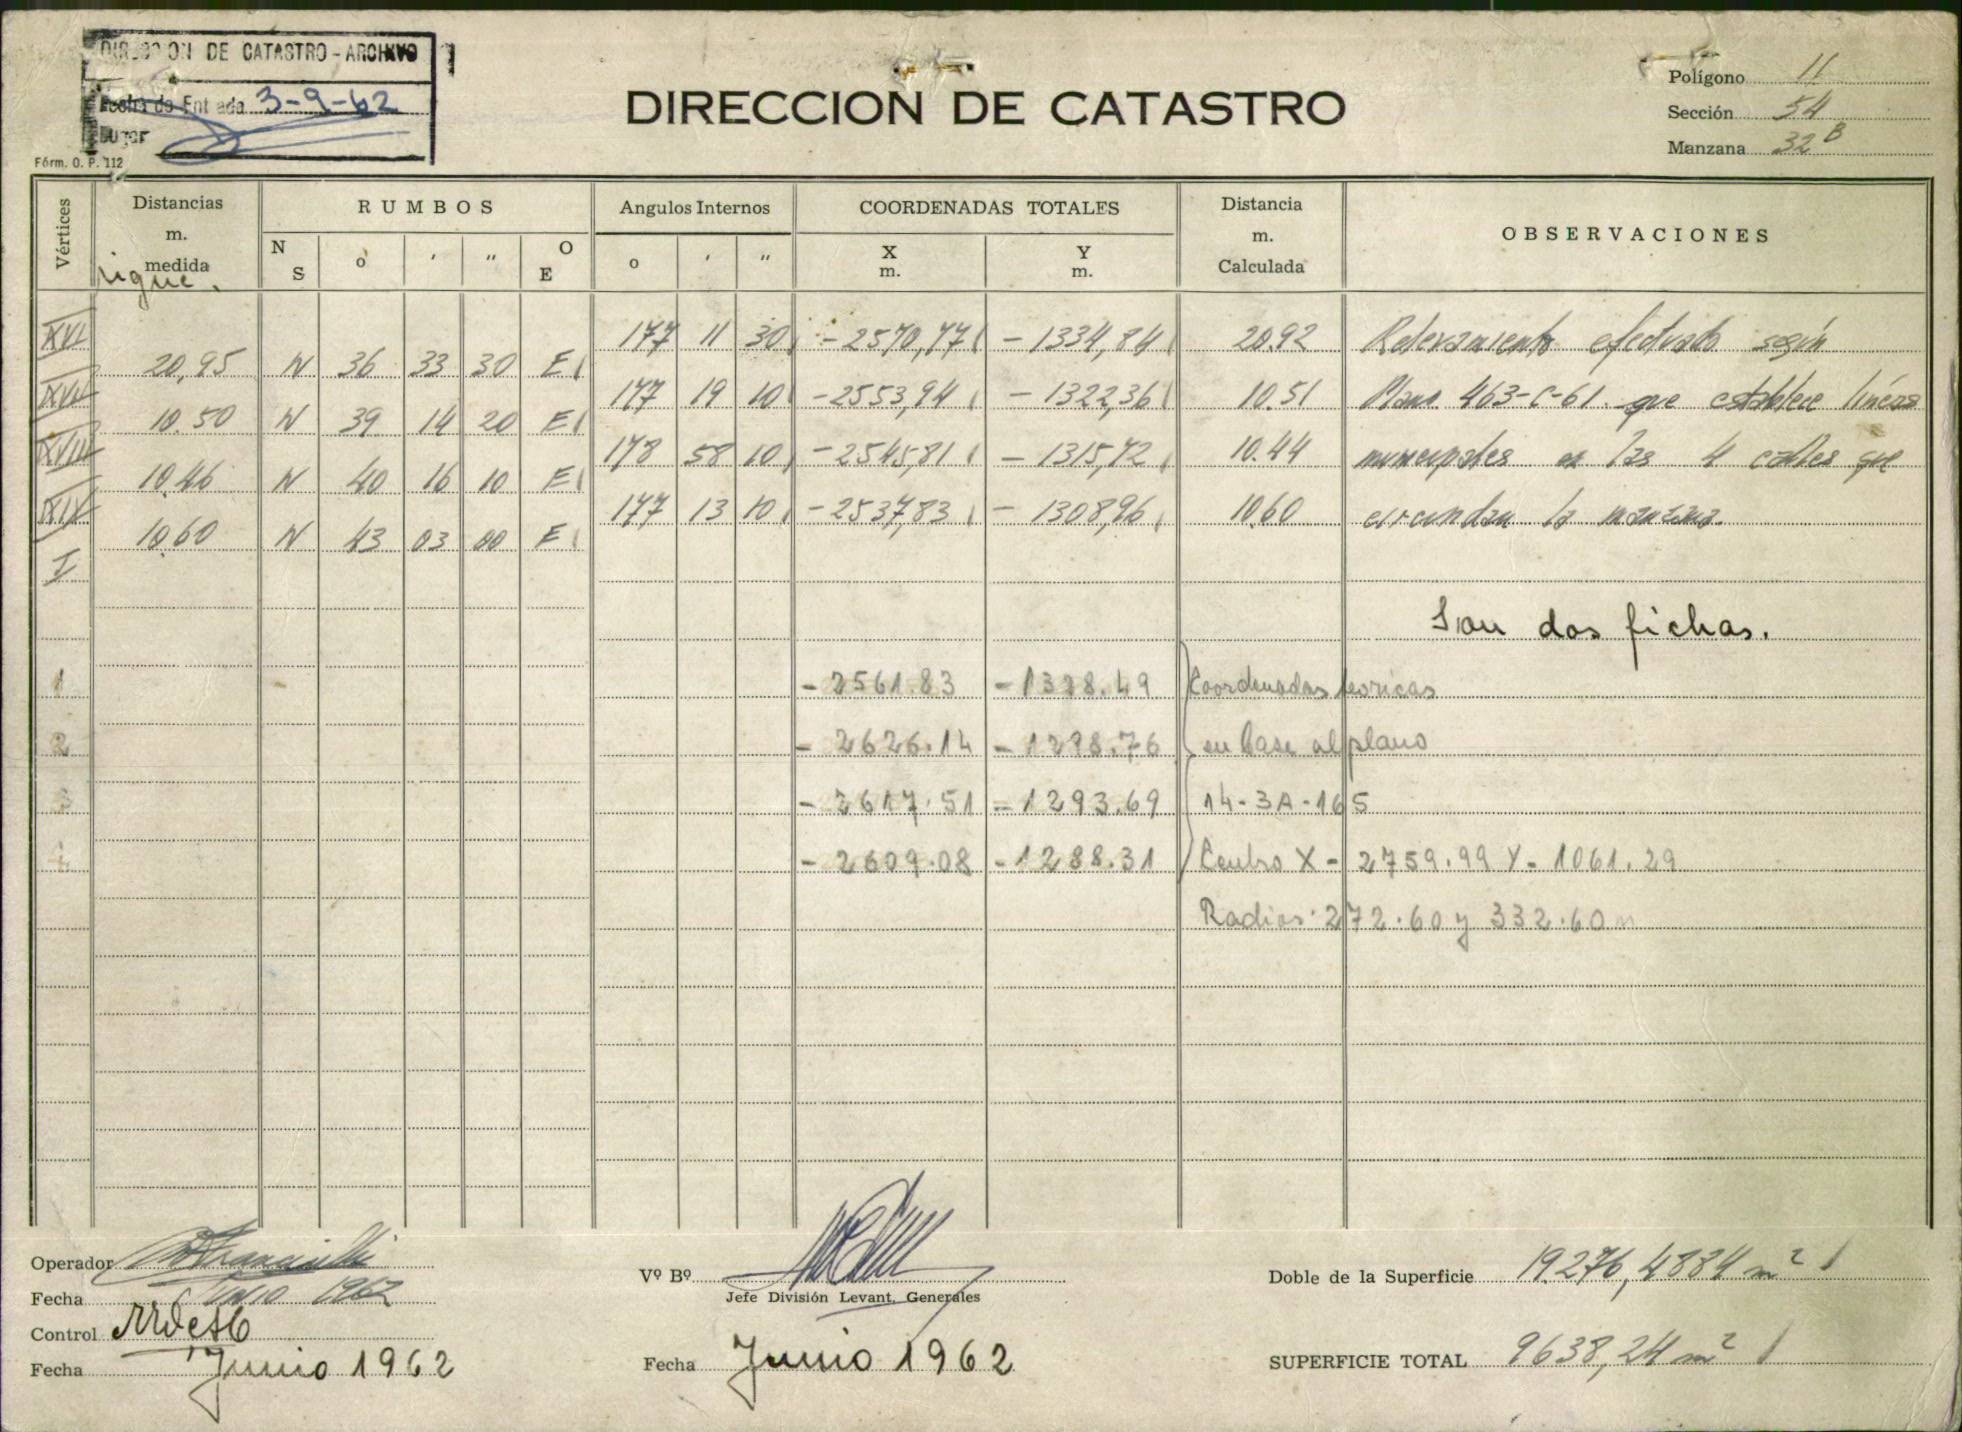 DIRECCION DE CATASTRO - ARCHIVO
Fecha de Entrada 3-9-62
Lugar
Fórm. O. P. 112
DIRECCION DE CATASTRO
Polígono 11
Sección 54
Manzana 32 B
Vértices
Distancias m. medida
RUMBOS
Angulos Internos
COORDENADAS TOTALES
Distancia m. Calculada
OBSERVACIONES
N S o ' " O E
o ' "
X m. Y m.
sigue.
XVI 177 11 30 -2570,77 -1334,84 20.92 Relevamiento efectuado según
20,95 N 36 33 30 E
XVII 177 19 10 -2553,94 -1322,36 10.51 Plano 463-C-61 que establece líneas
10.50 N 39 14 20 E
XVIII 178 58 10 -2545,81 -1315,72 10.44 municipales en las 4 calles que
10.46 N 40 16 10 E
XIX 177 13 10 -2537,83 -1308,96 10.60 circundan la manzana.
10.60 N 43 03 00 E
I
Son dos fichas.
1 -2561.83 -1328.49 Coordenadas teoricas
2 -2626.14 -1298.76 en base al plano
3 -2617.51 -1293.69 14-3A-165
4 -2609.08 -1288.31 Centro X - 2759.99 Y - 1061.29
Radios: 272.60 y 332.60 m
Operador
Fecha Junio 1962
Control
Fecha Junio 1962
Vº Bº
Jefe División Levant. Generales
Fecha Junio 1962
Doble de la Superficie 19.276,4884 m2
SUPERFICIE TOTAL 9638,24 m2